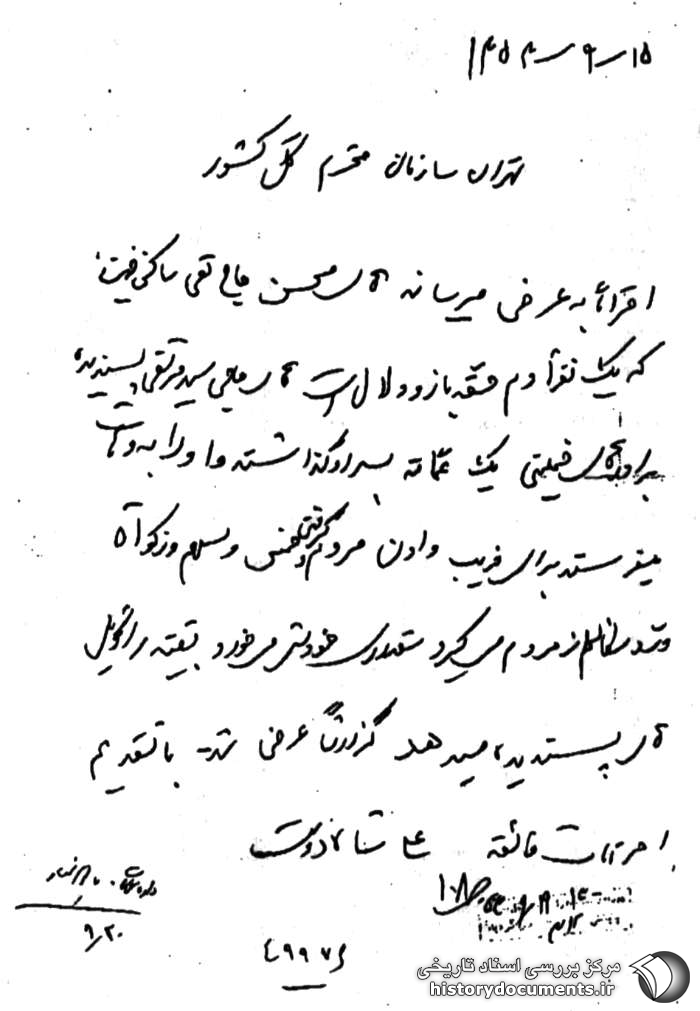 ۱۵ـ۹ـ۱۳۵۴
تهران سازمان محترم کل کشور
احتراماً به عرض میرساند آقای محسن حاج تقی ساکن خمین
که یک نفر آدم حقه باز و دلال است آقای حاجی سید مرتضی پسندیده
برادر آقای خمینی یک عمامه بسر او گذاشته و او را به دهات
میفرستد برای فریب دادن مردم و گرفتن خمس و سهم و زکوة
ورد مظالم از مردم می گیرد مقداری خودش می خورد بقیه را تحویل
آقای پسندیده میدهد گزارشاً عرض شد- با تقدیم
احترامات فائقه شاه دوست
۹/۲۰
مرکز بررسی اسناد تاریخی
historydocuments.ir